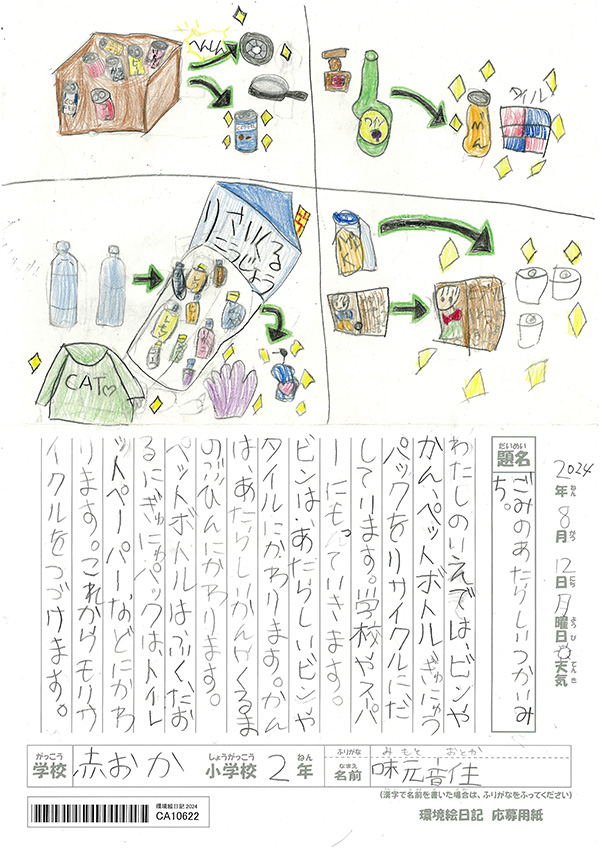 へんしん
ワイン
タイル
りさいくる
こうじょう
CAT
2024年ねん8月がつ12日にち月曜日ようび天気てんき
だいめい
題名
ごみのあたらしいつかいみ
ち。
わたしのいえでは、ビンや
かん、ペットボトル、ぎゅにゅう
パックをリサイクルにだ
してります。学校やスパ
ーにもっていきます。
ビンは、あたらしいビンや
タイルにかわります。かん
は、あたらしいかんやくるま
のぶひんにかわります。
ペットボトルは、ふく、たお
るにぎゅにゅパックは、トイレ
ットペーパーなどにかわ
ります。これからもリサ
イクルをつづけます。
がっこう しょうがっこう ねん ふりがな みもと おとか
学校 赤おか 小学校 2年 なまえ 名前 味元音佳
(漢字で名前を書いた場合は、ふりがなをふってください)
環境絵日記 2024
CA10622
環境絵日記 応募用紙